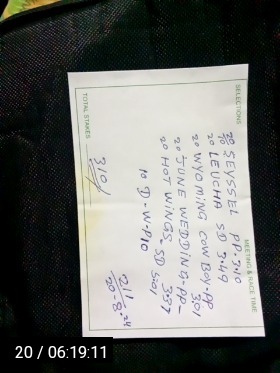 SELECTIONS
MEETING & RACE TIME
20 SEYSSEL PP. 3.10
20 LEUCHA SD 3.49
20 WYOMING COWBOY-PP
3.01
20 JUNE WEDDING-PP-
3.37
20 HOT WINGS - SD
10 D-W-P10
TOTAL STAKES
310
20 / 06:19:11